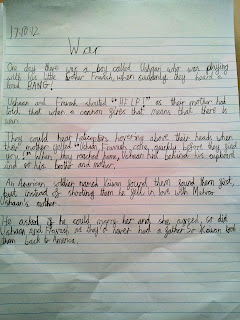 17.10.12
War
One day there was a boy called Ushaan who was playing
with his little brother Franish, when suddenly they heard a
loud BANG!
Ushaan and Franish shouted "HELP!" as their mother had
told that when a cannon fires that means that there is
war.
They could hear helicopters hovering above their heads when
their mother yelled "Ushaan, Franish, come, quickly before they find
you!" When they reached home, Ushaan hid behind his cupboard
and so his brother and mother.
An American soldier named Kiwan found them found them first,
but instead of shooting them he fell in love with
Ushaan's mother.
He asked if he could marry her and she agreed, so did
Ushaan and Franish as they'd never had a father. So Kiwan took
them back to America.